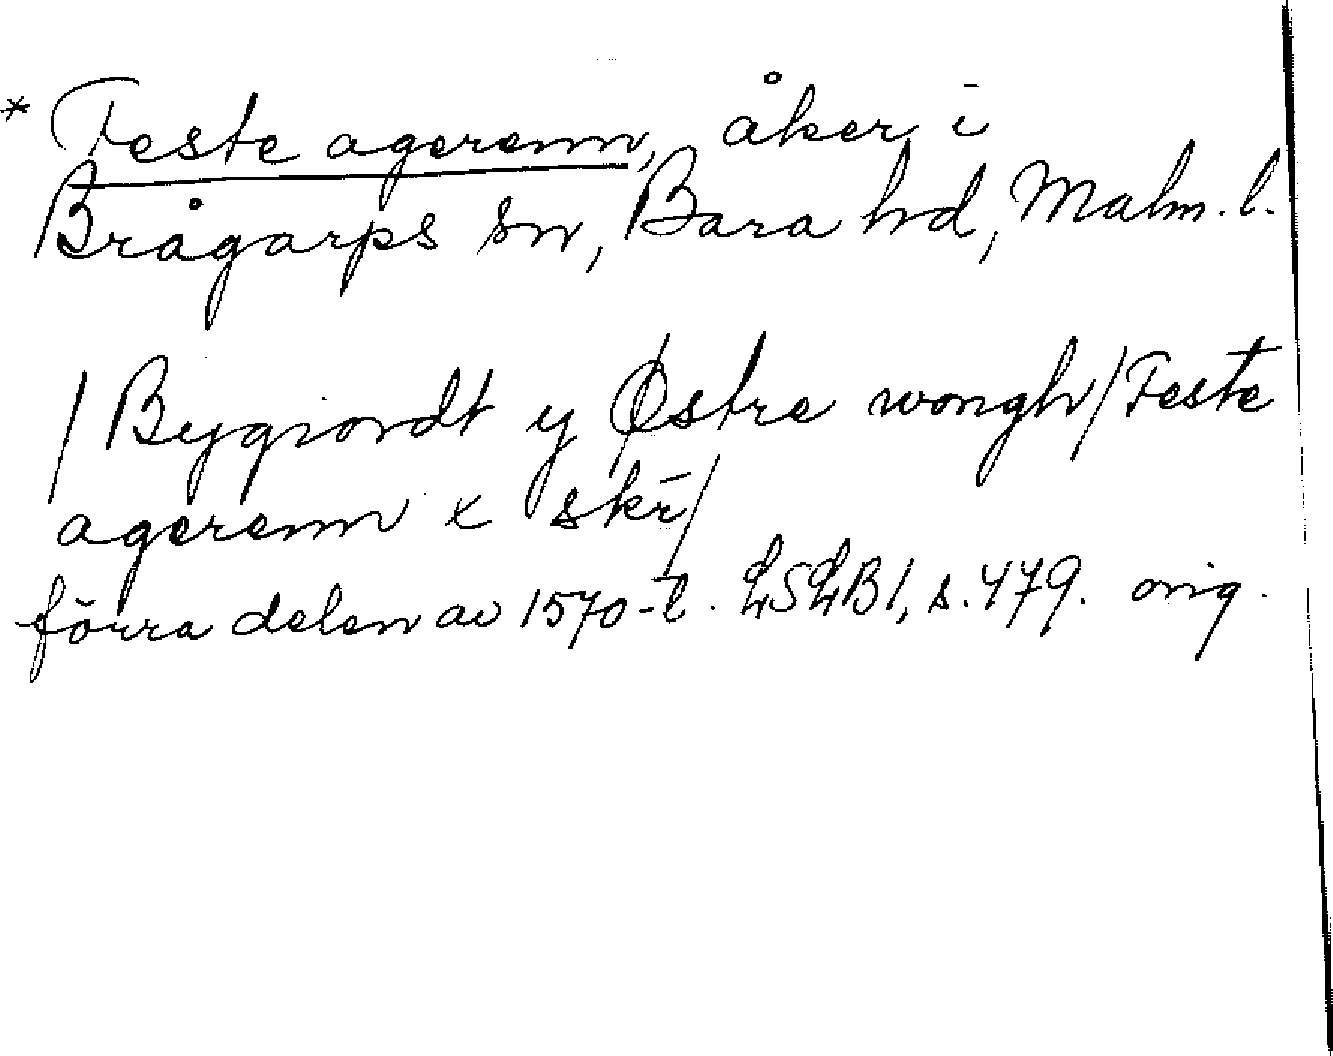 * Feste agerenn, åker i
Brågarps sn, Bara hd, Malm. l.
/ Bygiordt y Østre wongh / Feste
agerenn x skr̄ /
förra delen av 1570-t. LSLB1, s. 479. orig.